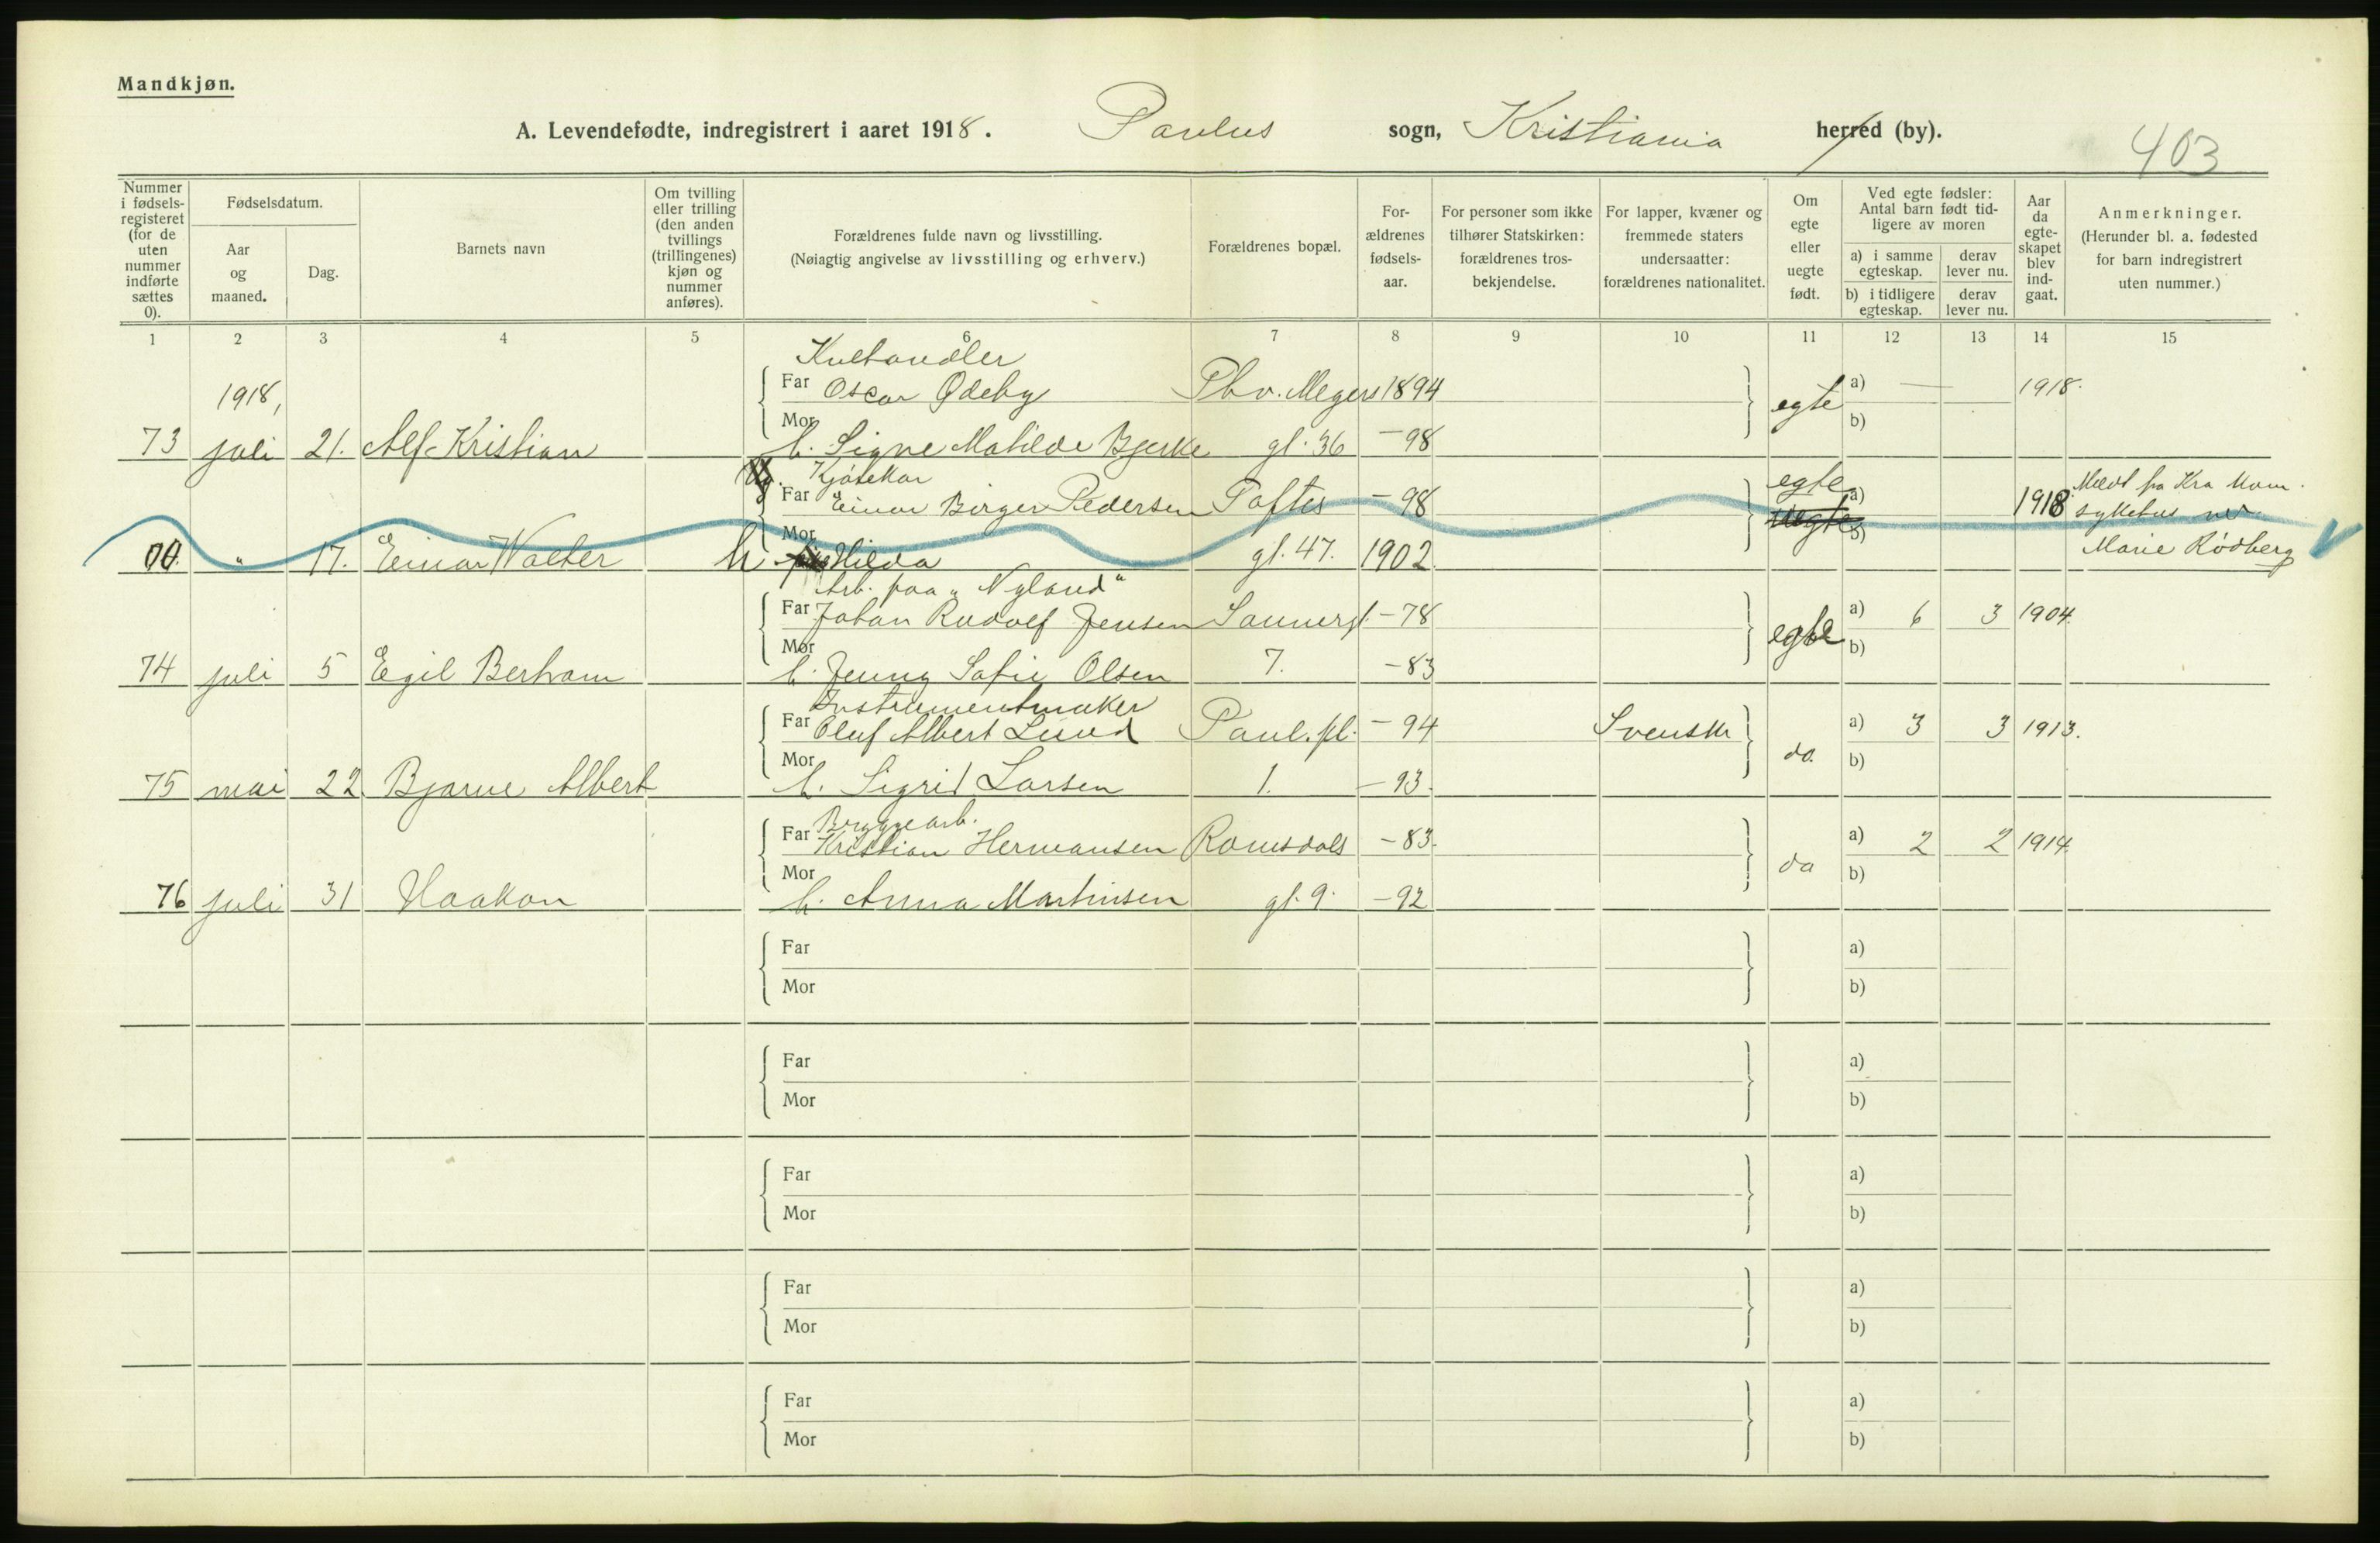 Mandkjøn.
A. Levendefødte, indregistrert i aaret 1918. Paulus sogn, Kristiania herred (by).
403
Nummer i fødsels-registeret (for de uten nummer indførte sættes 0).
Fødselsdatum.
Aar og maaned.
Dag.
Barnets navn
Om tvilling eller trilling (den anden tvillings (trillingenes) kjøn og nummer anføres).
Forældrenes fulde navn og livsstilling.
(Nøiagtig angivelse av livsstilling og erhverv.)
Forældrenes bopæl.
For-ældrenes fødsels-aar.
For personer som ikke tilhører Statskirken: forældrenes tros-bekjendelse.
For lapper, kvæner og fremmede staters undersaatter: forældrenes nationalitet.
Om egte eller uegte født.
Ved egte fødsler: Antal barn født tid-ligere av moren
a) i samme egteskap.
derav lever nu.
b) i tidligere egteskap.
derav lever nu.
Aar da egte-skapet blev ind-gaat.
Anmerkninger.
(Herunder bl. a. fødested for barn indregistrert uten nummer.)
1 2 3 4 5 6 7 8 9 10 11 12 13 14 15
Kulhandler
1918, Far Oscar Ødeby Thv. Meyers 1894 egte a) — 1918.
73 juli 21. Alf Kristian Mor h. Signe Matilde Bjerke gt. 36 – 98 b)
Kjørekar egte
Far Einar Birger Pedersen Toftes – 98 uegte a) 1918 Meldt fra Kra Kom.
sykehus ved
00. " 17. Einar Walter Mor h. Hilda gt. 47. 1902 b) Marie Rødberg
Arb. paa "Nyland"
Far Johan Rudolf Jensen Sannergt. – 78 egte a) 6 3 1904.
74 juli 5 Egil Bertram Mor h. Jenny Sofie Olsen 7. – 83 b)
Instrumentmaker
Far Oluf Albert Lund Paul. pl. – 94 Svensk do. a) 3 3 1913.
75 mai 22. Bjarne Albert Mor h. Sigrid Larsen 1. – 93. b)
Bryggearb.
Far Kristian Hermansen Romsdals – 83. do a) 2 2 1914.
76 juli 31 Haakon Mor h. Anna Martinsen gt. 9. – 92 b)
Far a)
Mor b)
Far a)
Mor b)
Far a)
Mor b)
Far a)
Mor b)
Far a)
Mor b)